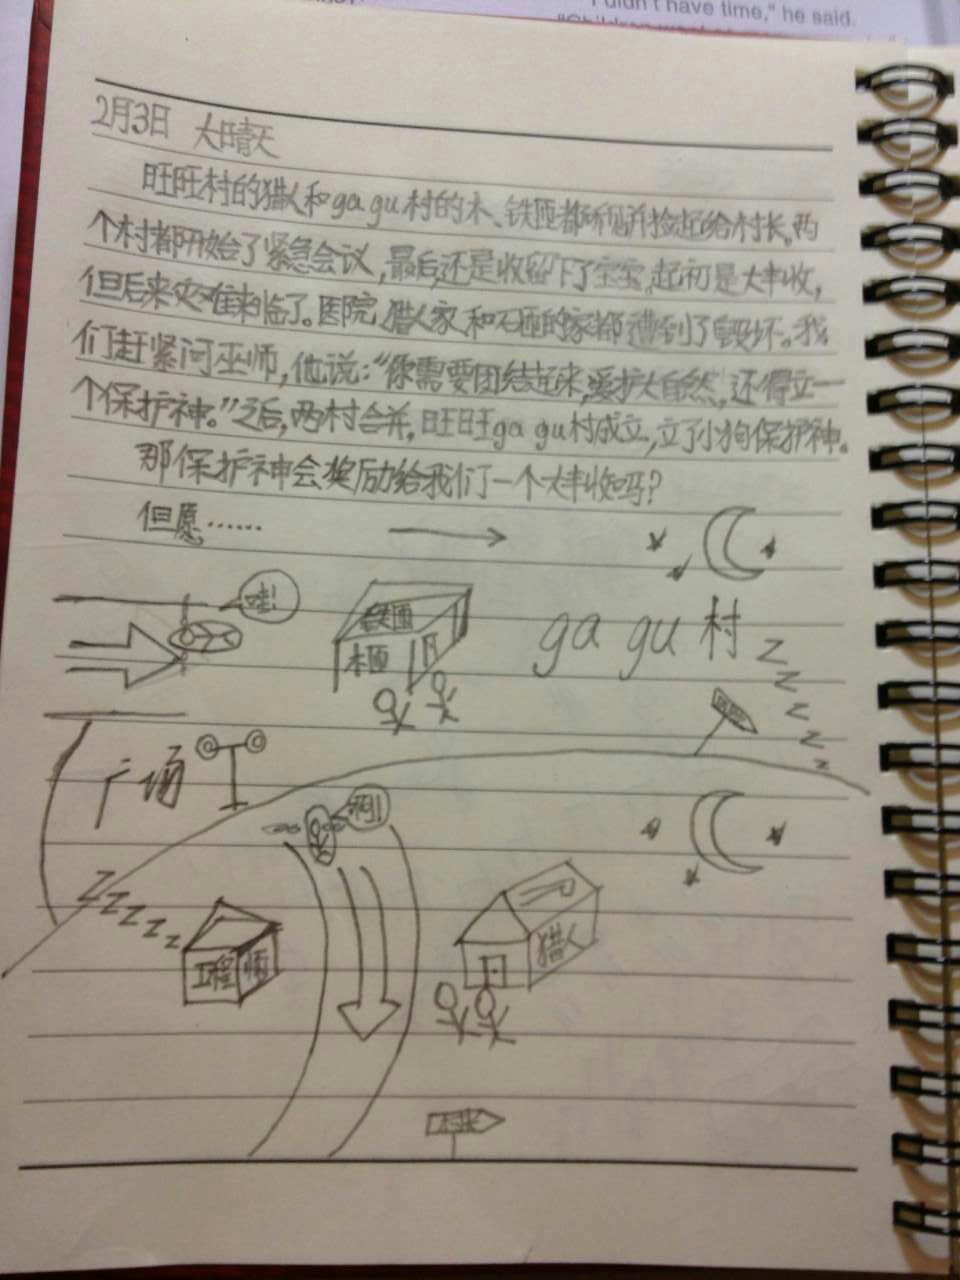 I didn't have time," he said.
2月3日 大晴天
旺旺村的猎人和ga gu村的木、铁匠都听见并捡起给村长。两
个村都开始了紧急会议，最后，还是收留下了宝宝。起初是大丰收，
但后来灾难来临了。医院，猎人家和石匠的家都遭到了毁坏。我
们赶紧问巫师，他说：“你需要团结起来，爱护大自然，还得立一
个保护神。”之后，两村合并，旺旺ga gu村成立，立了小狗保护神。
那保护神会奖励给我们一个大丰收吗？
但愿……
哇！
铁匠
木匠
ga gu 村
zzzzz
广场
啊！
zzzzz
工程师
猎人